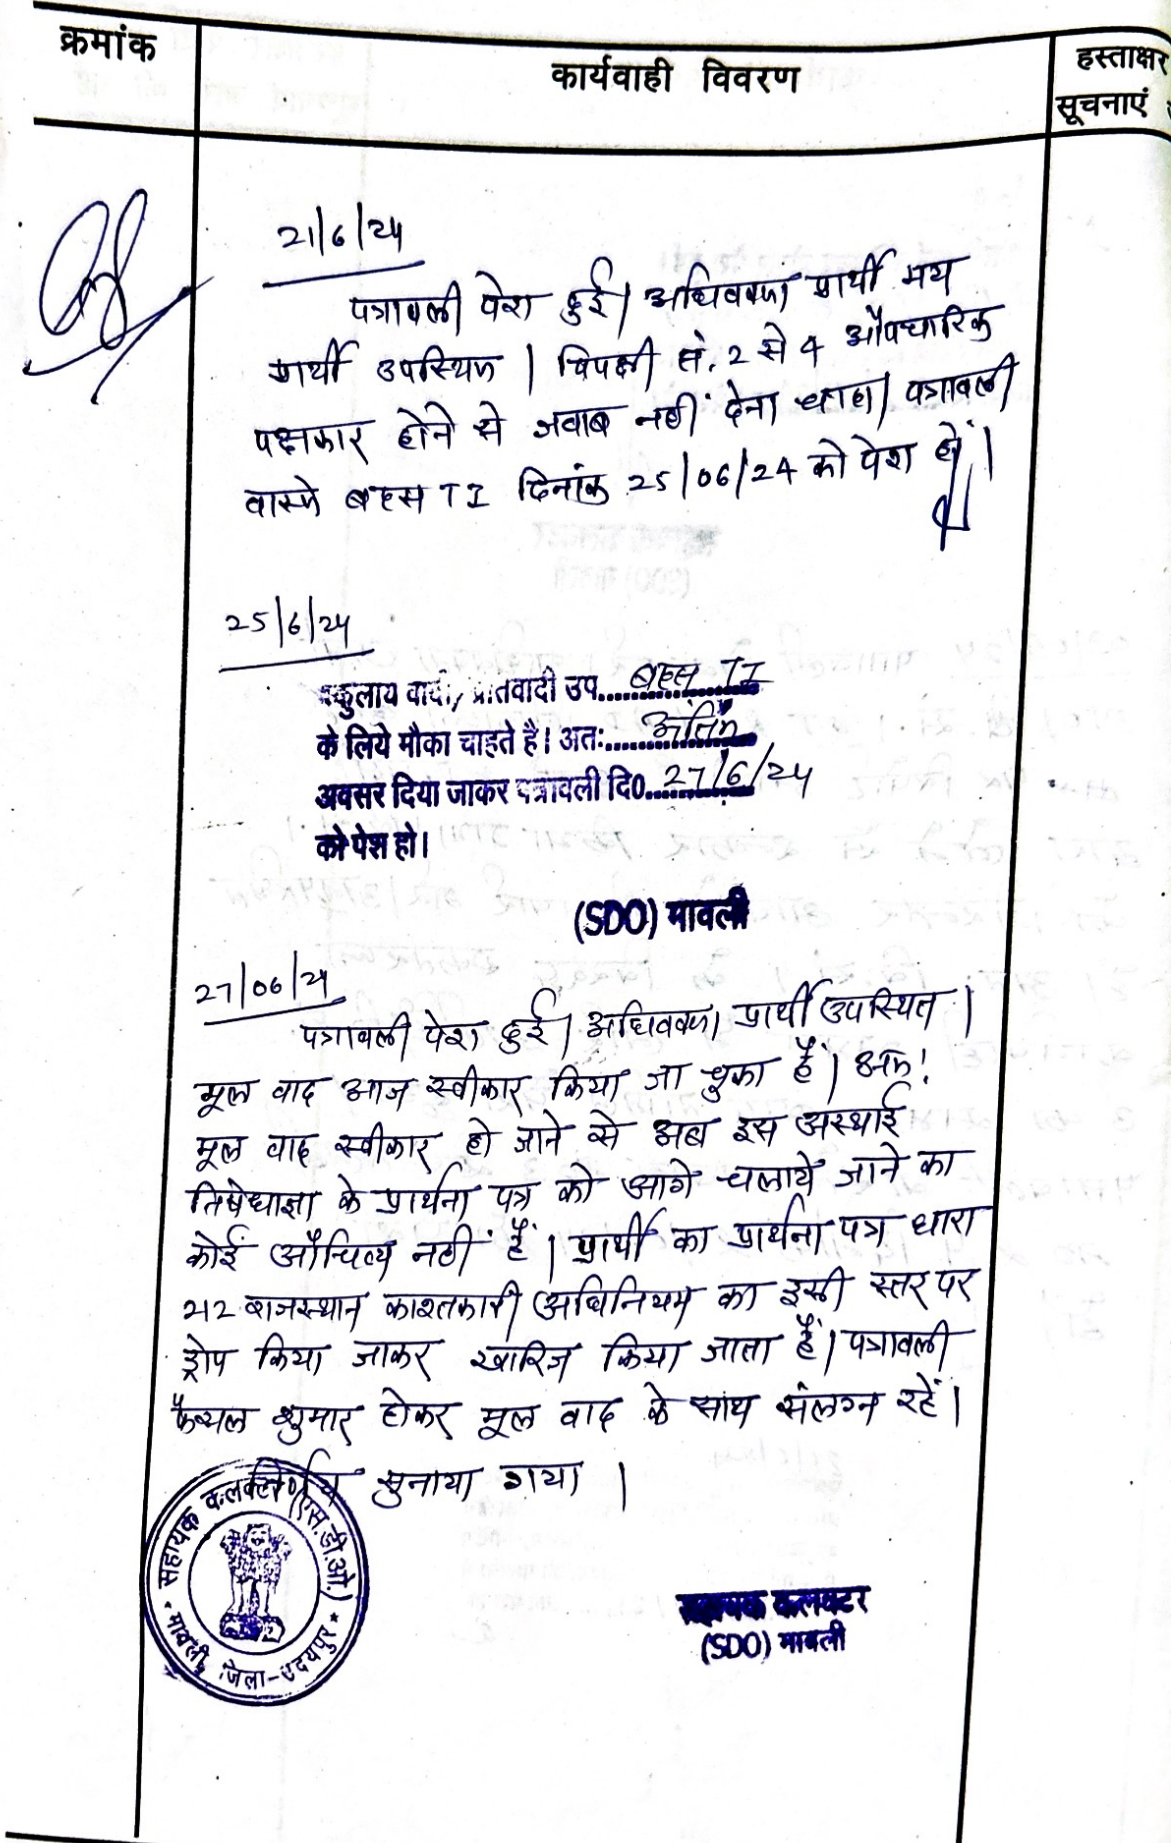 क्रमांक
कार्यवाही विवरण
हस्ताक्षर
सूचनाएं
21/6/24
पत्रावली पेश हुई। अधिवक्ता प्रार्थी मय
प्रार्थी उपस्थित। विपक्षी सं. 2 से 4 औपचारिक
पक्षकार होने से जवाब नहीं देना चाहा। पत्रावली
वास्ते बहस TI दिनांक 25/06/24 को पेश हो।
25/6/24
वकुलाय वादी/ प्रतिवादी उप.....बहस TI
के लिये मौका चाहते है। अतः.....अंतिम
अवसर दिया जाकर पत्रावली दि0..27/6/24
को पेश हो।
(SDO) मावली
27/06/24
पत्रावली पेश हुई। अधिवक्ता प्रार्थी उपस्थित।
मूल वाद आज स्वीकार किया जा चुका हैं। अतः
मूल वाद स्वीकार हो जाने से अब इस अस्थाई
निषेधाज्ञा के प्रार्थना पत्र को आगे चलाये जाने का
कोई औचित्य नहीं हैं। प्रार्थी का प्रार्थना पत्र धारा
212 राजस्थान काश्तकारी अधिनियम का इसी स्तर पर
ड्रोप किया जाकर खारिज किया जाता हैं। पत्रावली
फैसल शुमार होकर मूल वाद के साथ संलग्न रहें।
निर्णय सुनाया गया।
सहायक कलक्टर (एस.डी.ओ.)
मावली, जिला-उदयपुर
सहायक कलक्टर
(SDO) मावली